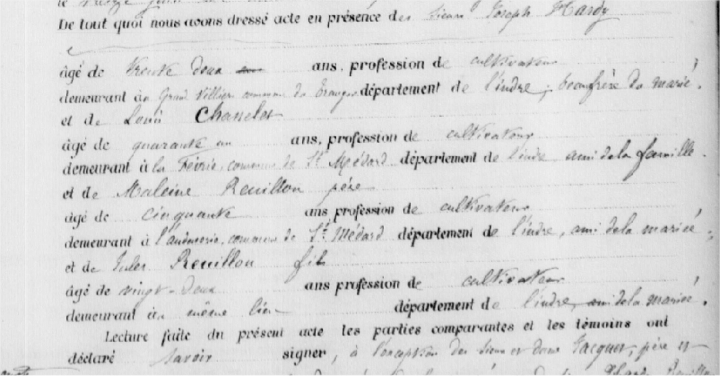 De tout quoi nous avons dressé acte en présence des sieurs Joseph Hardy
âgé de trente deux ans, profession de cultivateur
demeurant au Grand Villier commune de département de l'indre, beaufrère du marié,
et de Louis Chanelot
âgé de quarante un ans, profession de cultivateur
demeurant à la commune de St Médard département de l'indre ami de la famille
et de Rouillon père
âgé de cinquante ans profession de cultivateur
demeurant à commune de St Médard département de l'indre, ami de la mariée,
et de Jules Rouillon fils
âgé de vingt-deux ans profession de cultivateur
demeurant au même lieu département de l'indre, ami de la mariée.
Lecture faite du présent acte les parties comparantes et les témoins ont
déclaré savoir signer, à l'exception des sieur et dame Jacquet, père et